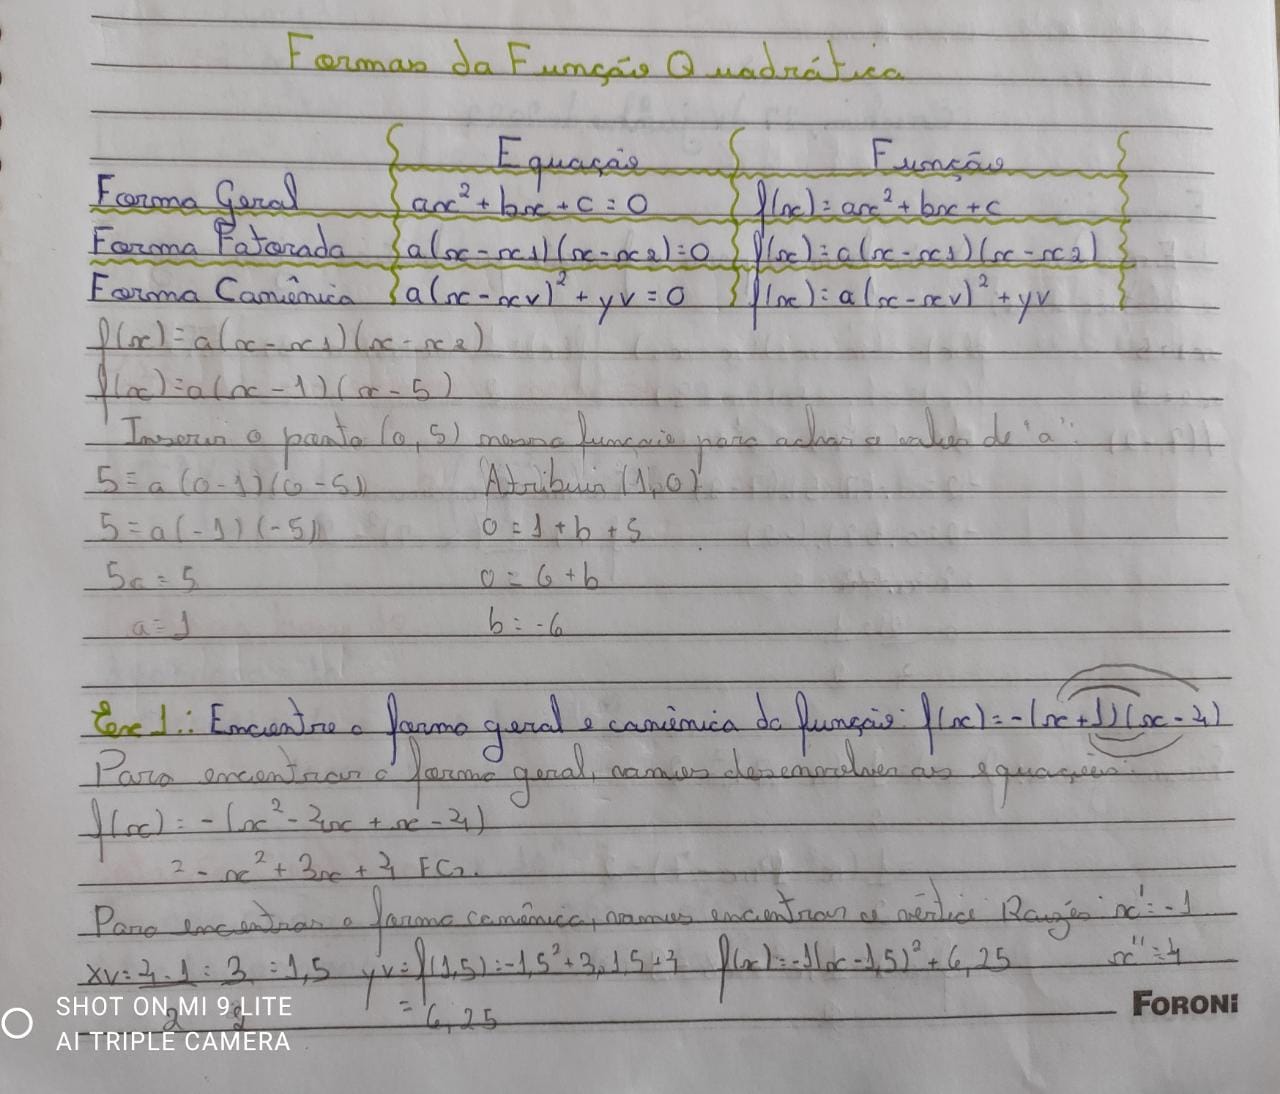 Formas da Função Quadrática
Equação Função
Forma Geral ax² + bx + c = 0 f(x) = ax² + bx + c
Forma Fatorada a(x - x1)(x - x2) = 0 f(x) = a(x - x1)(x - x2)
Forma Canônica a(x - xv)² + yv = 0 f(x) = a(x - xv)² + yv
f(x) = a(x - x1)(x - x2)
f(x) = a(x - 1)(x - 5)
Inserir o ponto (0, 5) nessa função para achar o valor de "a":
5 = a(0 - 1)(0 - 5) Atribuir (1, 0)
5 = a(-1)(-5) 0 = 1 + b + 5
5a = 5 0 = 6 + b
a = 1 b = -6
Exc 1.: Encontre a forma geral e canônica da função: f(x) = -(x + 1)(x - 4)
Para encontrar a forma geral, vamos desenvolver as equações:
f(x) = -(x² - 4x + x - 4)
= -x² + 3x + 4 FG.
Para encontrar a forma canônica, vamos encontrar o vértice Raízes x' = -1
xv = 4 - 1 = 3 = 1,5 yv = f(1,5) = -1,5² + 3.1,5 + 4 f(x) = -1(x - 1,5)² + 6,25 x'' = 4
2 2 = 6,25
FORONI
SHOT ON MI 9 LITE
AI TRIPLE CAMERA